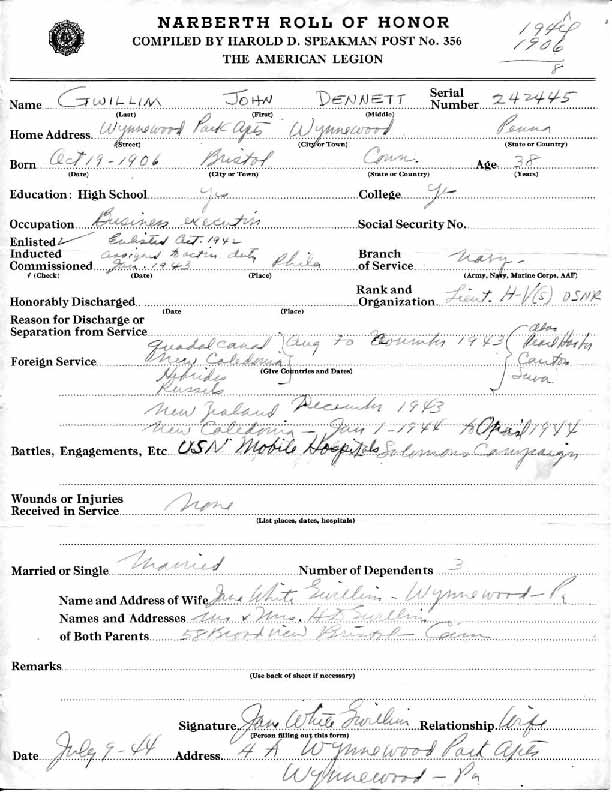 NARBERTH ROLL OF HONOR
COMPILED BY HAROLD D. SPEAKMAN POST No. 356
THE AMERICAN LEGION
1944
1906
8
Name GWILLIM JOHN DENNETT Serial Number 242445
(Last) (First) (Middle)
Home Address Wynnewood Park Apts Wynnewood Penna
(Street) (City or Town) (State or Country)
Born Oct 19-1906 Bristol Conn. Age 38
(Date) (City or Town) (State or Country) (Years)
Education: High School Yes College Yes
Occupation Business Executive Social Security No.
Enlisted ✓ Enlisted Oct. 1942
Inducted assigned to active duty Branch
Commissioned Jan. 1943 Phila of Service Navy
✓ (Check: (Date) (Place) (Army, Navy, Marine Corps, AAF)
Honorably Discharged Rank and Organization Lieut. H-V(S) USNR
(Date (Place)
Reason for Discharge or
Separation from Service
Guadalcanal } Aug to November 1943 (also Pearl Harbor
Foreign Service New Caledonia Canton
(Give Countries and Dates)
Hebrides Suva
Russels
New Zealand December 1943
New Caledonia - Jan 1-1944 to April 1944
Battles, Engagements, Etc USN Mobile Hospitals Solomons Campaign
Wounds or Injuries
Received in Service None
(List places, dates, hospitals)
Married or Single Married Number of Dependents 3
Name and Address of Wife Jane White Gwillim - Wynnewood - Pa
Names and Addresses Mr & Mrs. H D Gwillim
of Both Parents 58 Broadview Bristol - Conn
Remarks
(Use back of sheet if necessary)
Signature Jane White Gwillim Relationship Wife
(Person filling out this form)
Date July 9-44 Address 4 A Wynnewood Park Apts
Wynnewood - Pa